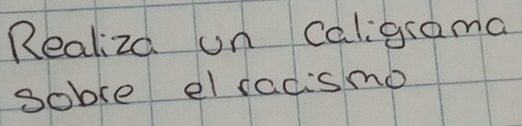 Realiza un caligrama
sobre el racismo